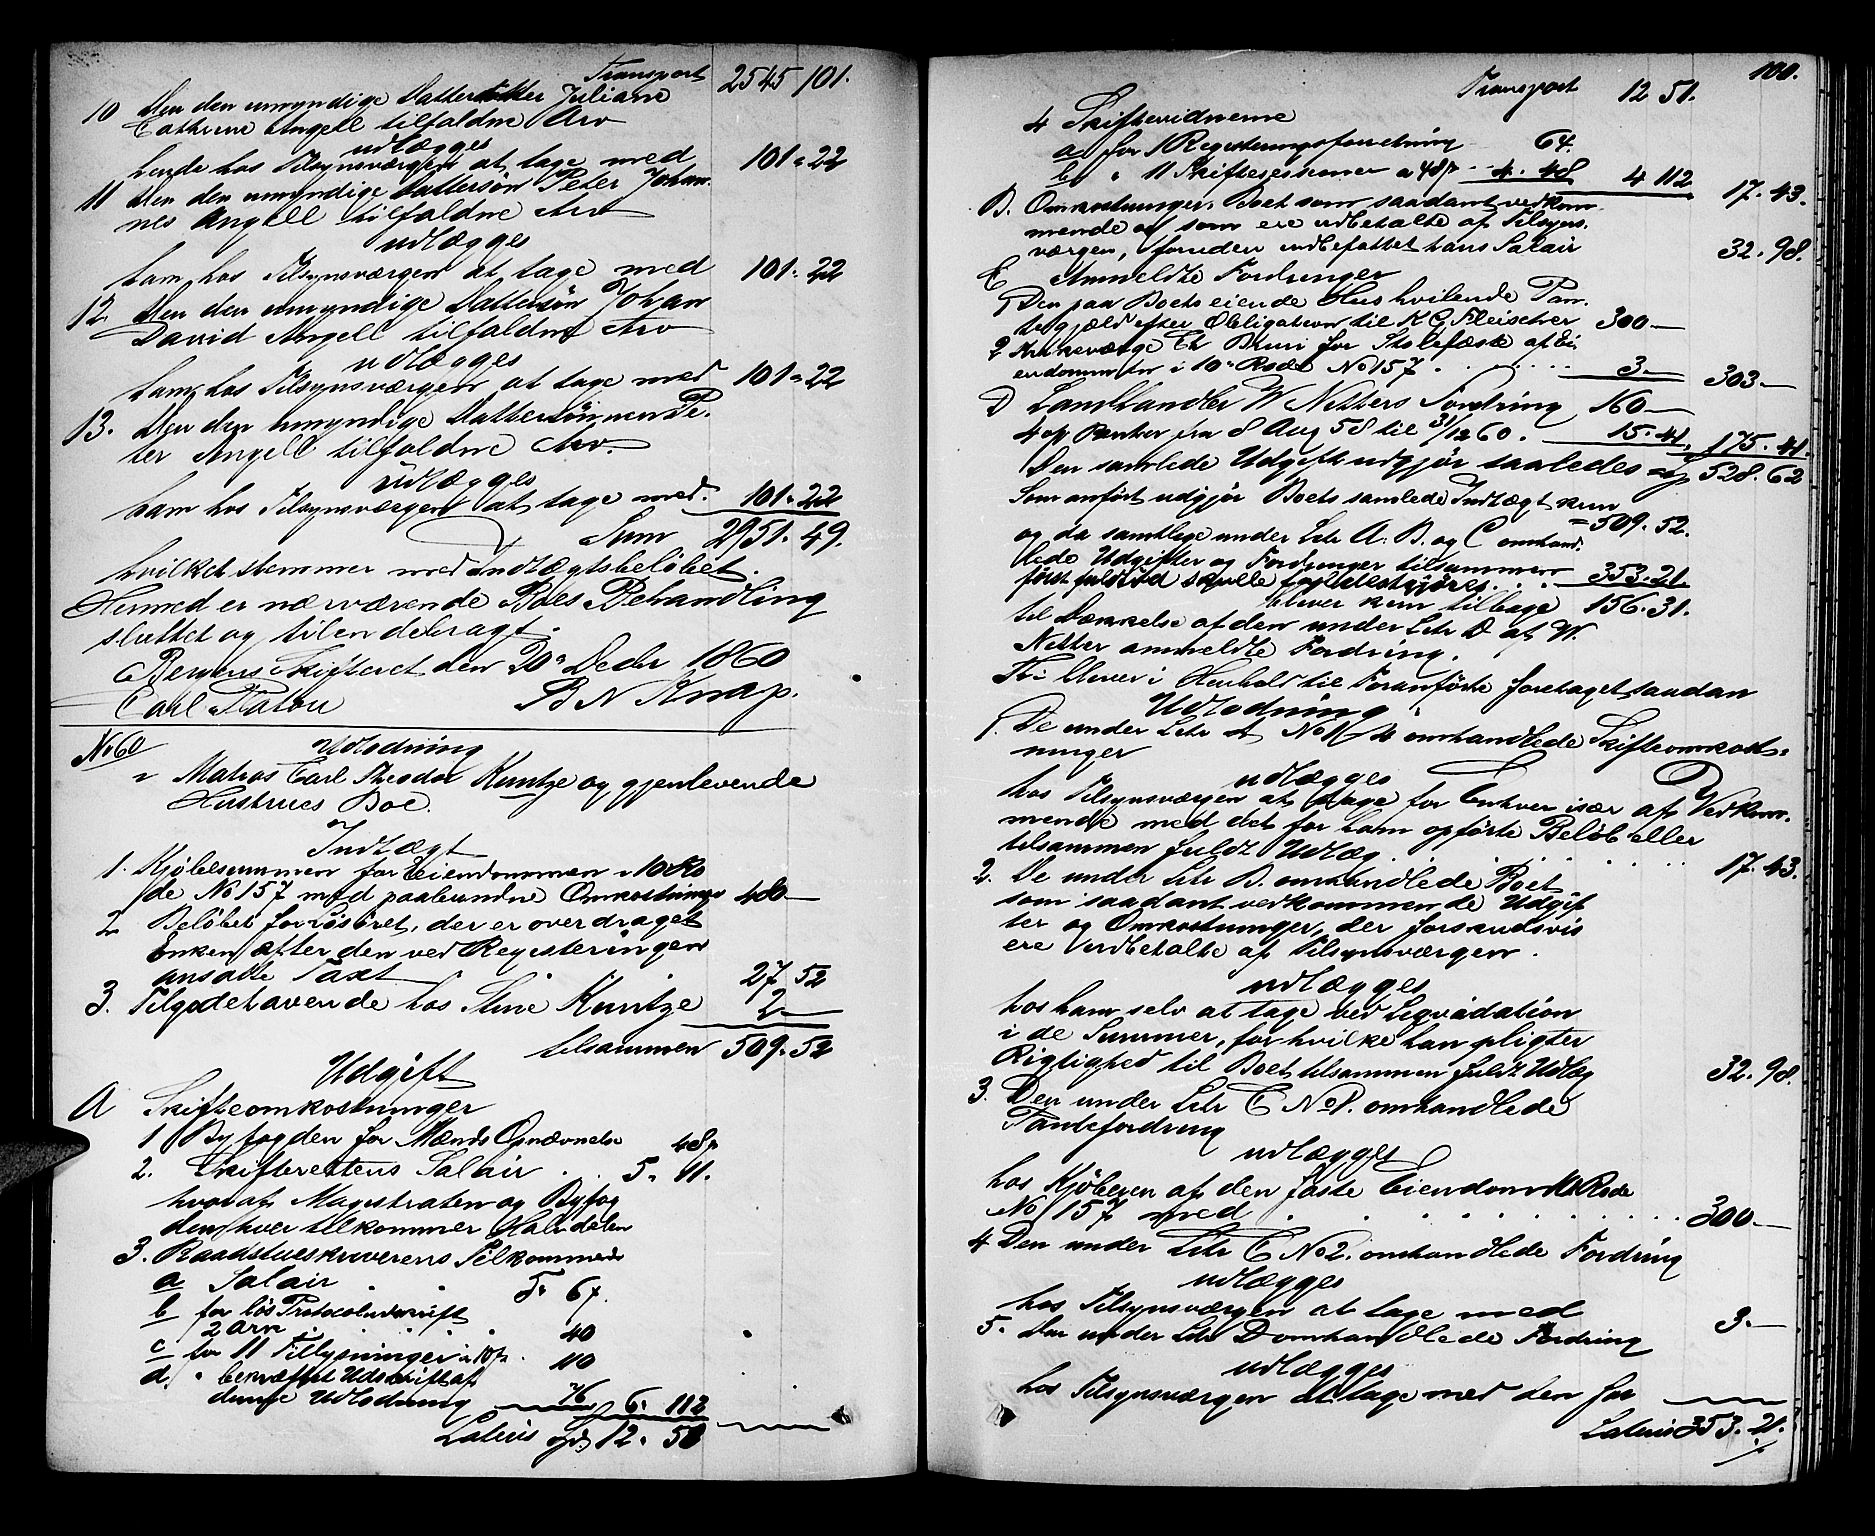 Transport 2545 101.
10 Den den umyndige Datterdatter Juliane
Cathrine Angell tilfaldne Arv
udlægges
hende hos Tilsynsværgen at tage med 101 " 22
11 Den den umyndige Dattersøn Peter Johan-
nes Angell tilfaldne Arv
udlægges
ham hos Tilsynsværgen at tage med 101 " 22
12. Den den umyndige Dattersøn Johan
David Angell tilfaldne Arv
udlægges
ham hos Tilsynsværgen at tage med 101 " 22
13. Den den umyndige Dattersønnen Pe-
ter Angell tilfaldne Arv.
udlægges
ham hos Tilsynsværgen at tage med. 101 " 22
Sum 2951. 49.
hvilket stemmer med Indtægtsbeløbet.
Hermed er nærværende Boes Behandling
sluttet og tilendebragt.
Bergens Skifteret den 20de Decbr 1860
Carl Platou B N Knap.
No 60 Udlodning
i Matros Carl Theodor Kuntze og gjenlevende
Hustrues Boe.
Indtægt
1. Kjøbesummen for Eiendommen i 10de Ro
de No 157 med paabundne Omkostninger 480 —
2 Beløbet for Løsøret, der er overdraget
Enken efter den ved Registeringen
ansatte Taxt 27. 52
3. Tilgodehavende hos Stine Kuntze 2 —
tilsammen 509. 52
Udgift
A Skifteomkostninger
1 Byfogden for Mænds Opnævnelse 48 p
2. Skifterettens Salair . . 5. 11.
hvoraf Magistraten og Byfog
den hver tilkommer Halvdelen
3. Raadstueskriverens Tilkommende
a Salair 5. 67.
b for løs Protocoludskrift
2 Ark 40
c for 11 Tillysninger a 10 p. 110
d. " bekræftet Udskrift af
denne Udlodning 76 6. 112
Lateris Spd 12. 51
100.
Transport 12 51.
4 Skiftevidnerne
a for 1 Registeringsforretning 64.
b " 11 Skiftesessioner a 48 p 4. 48 4 112 17. 43.
B. Omkostninger, Boet som saadant vedkom-
mende og som ere udbetalte af Tilsyns-
værgen, foruden indbefattet hans Salair 32. 98.
C Anmeldte Fordringer
1 Den paa Boets eiende Hus hvilende Pan-
tegjæld efter Obligation til K G Fleischer 300 —
2 Kirkeværge Chr Bruun for Stolefæste af Ei-
endommen i 10de Rode No 157 . . . 3 — 303 —
D Landhandler W Netters Fordring 160 —
4 op Renter fra 8 Aug 58 til 31/12 60. 15. 41. 175. 41.
Den samlede Udgift udgjør saaledes Spd 528. 62
Som anført udgjør Boets samlede Indtægt kun
= 509. 52.
og da samtlige under Litr A. B. og C omhand-
lede Udgifter og Fordringer tilsammen
først fuldtud skulle fyldestgjøres . . 353. 21.
bliver kun tilbage 156. 31.
til Dækkelse af den under Litr D af W.
Netter anmeldte Fordring.
Thi bliver i Henhold til Foranførte foretaget saadan
Udlodning.
1. De under Litr A No 1/4 omhandlede Skifteomkost-
ninger
udlægges
hos Tilsynsværgen at tage for Enhver især af Vedkom-
mende med det for ham opførte Beløb eller
tilsammen fuldt Udlæg 17. 43.
2. De under Litr B. omhandlede Boet
som saadant vedkommende Udgif
ter og Omkostninger, der forskudsvis
ere udbetalte af Tilsynsværgen.
udlægges
hos ham selv at tage ved Liqvidation
i de Summer, for hvilke han pligter
Rigtighed til Boet tilsammen fuldt Udlæg 32. 98.
3. Den under Litr C No 1. omhandlede
Pantefordring
udlægges
hos Kjøberen af den faste Eiendom 10de Rode
No 157 med . . . . 300 —
4 Den under Litr C No 2. omhandlede Fordring
udlægges
hos Tilsynsværgen at tage med 3. —
5. Den under Litr D omhandlede Fordring
udlægges
hos Tilsynsværgen at tage med den for
Lateris 353. 21.